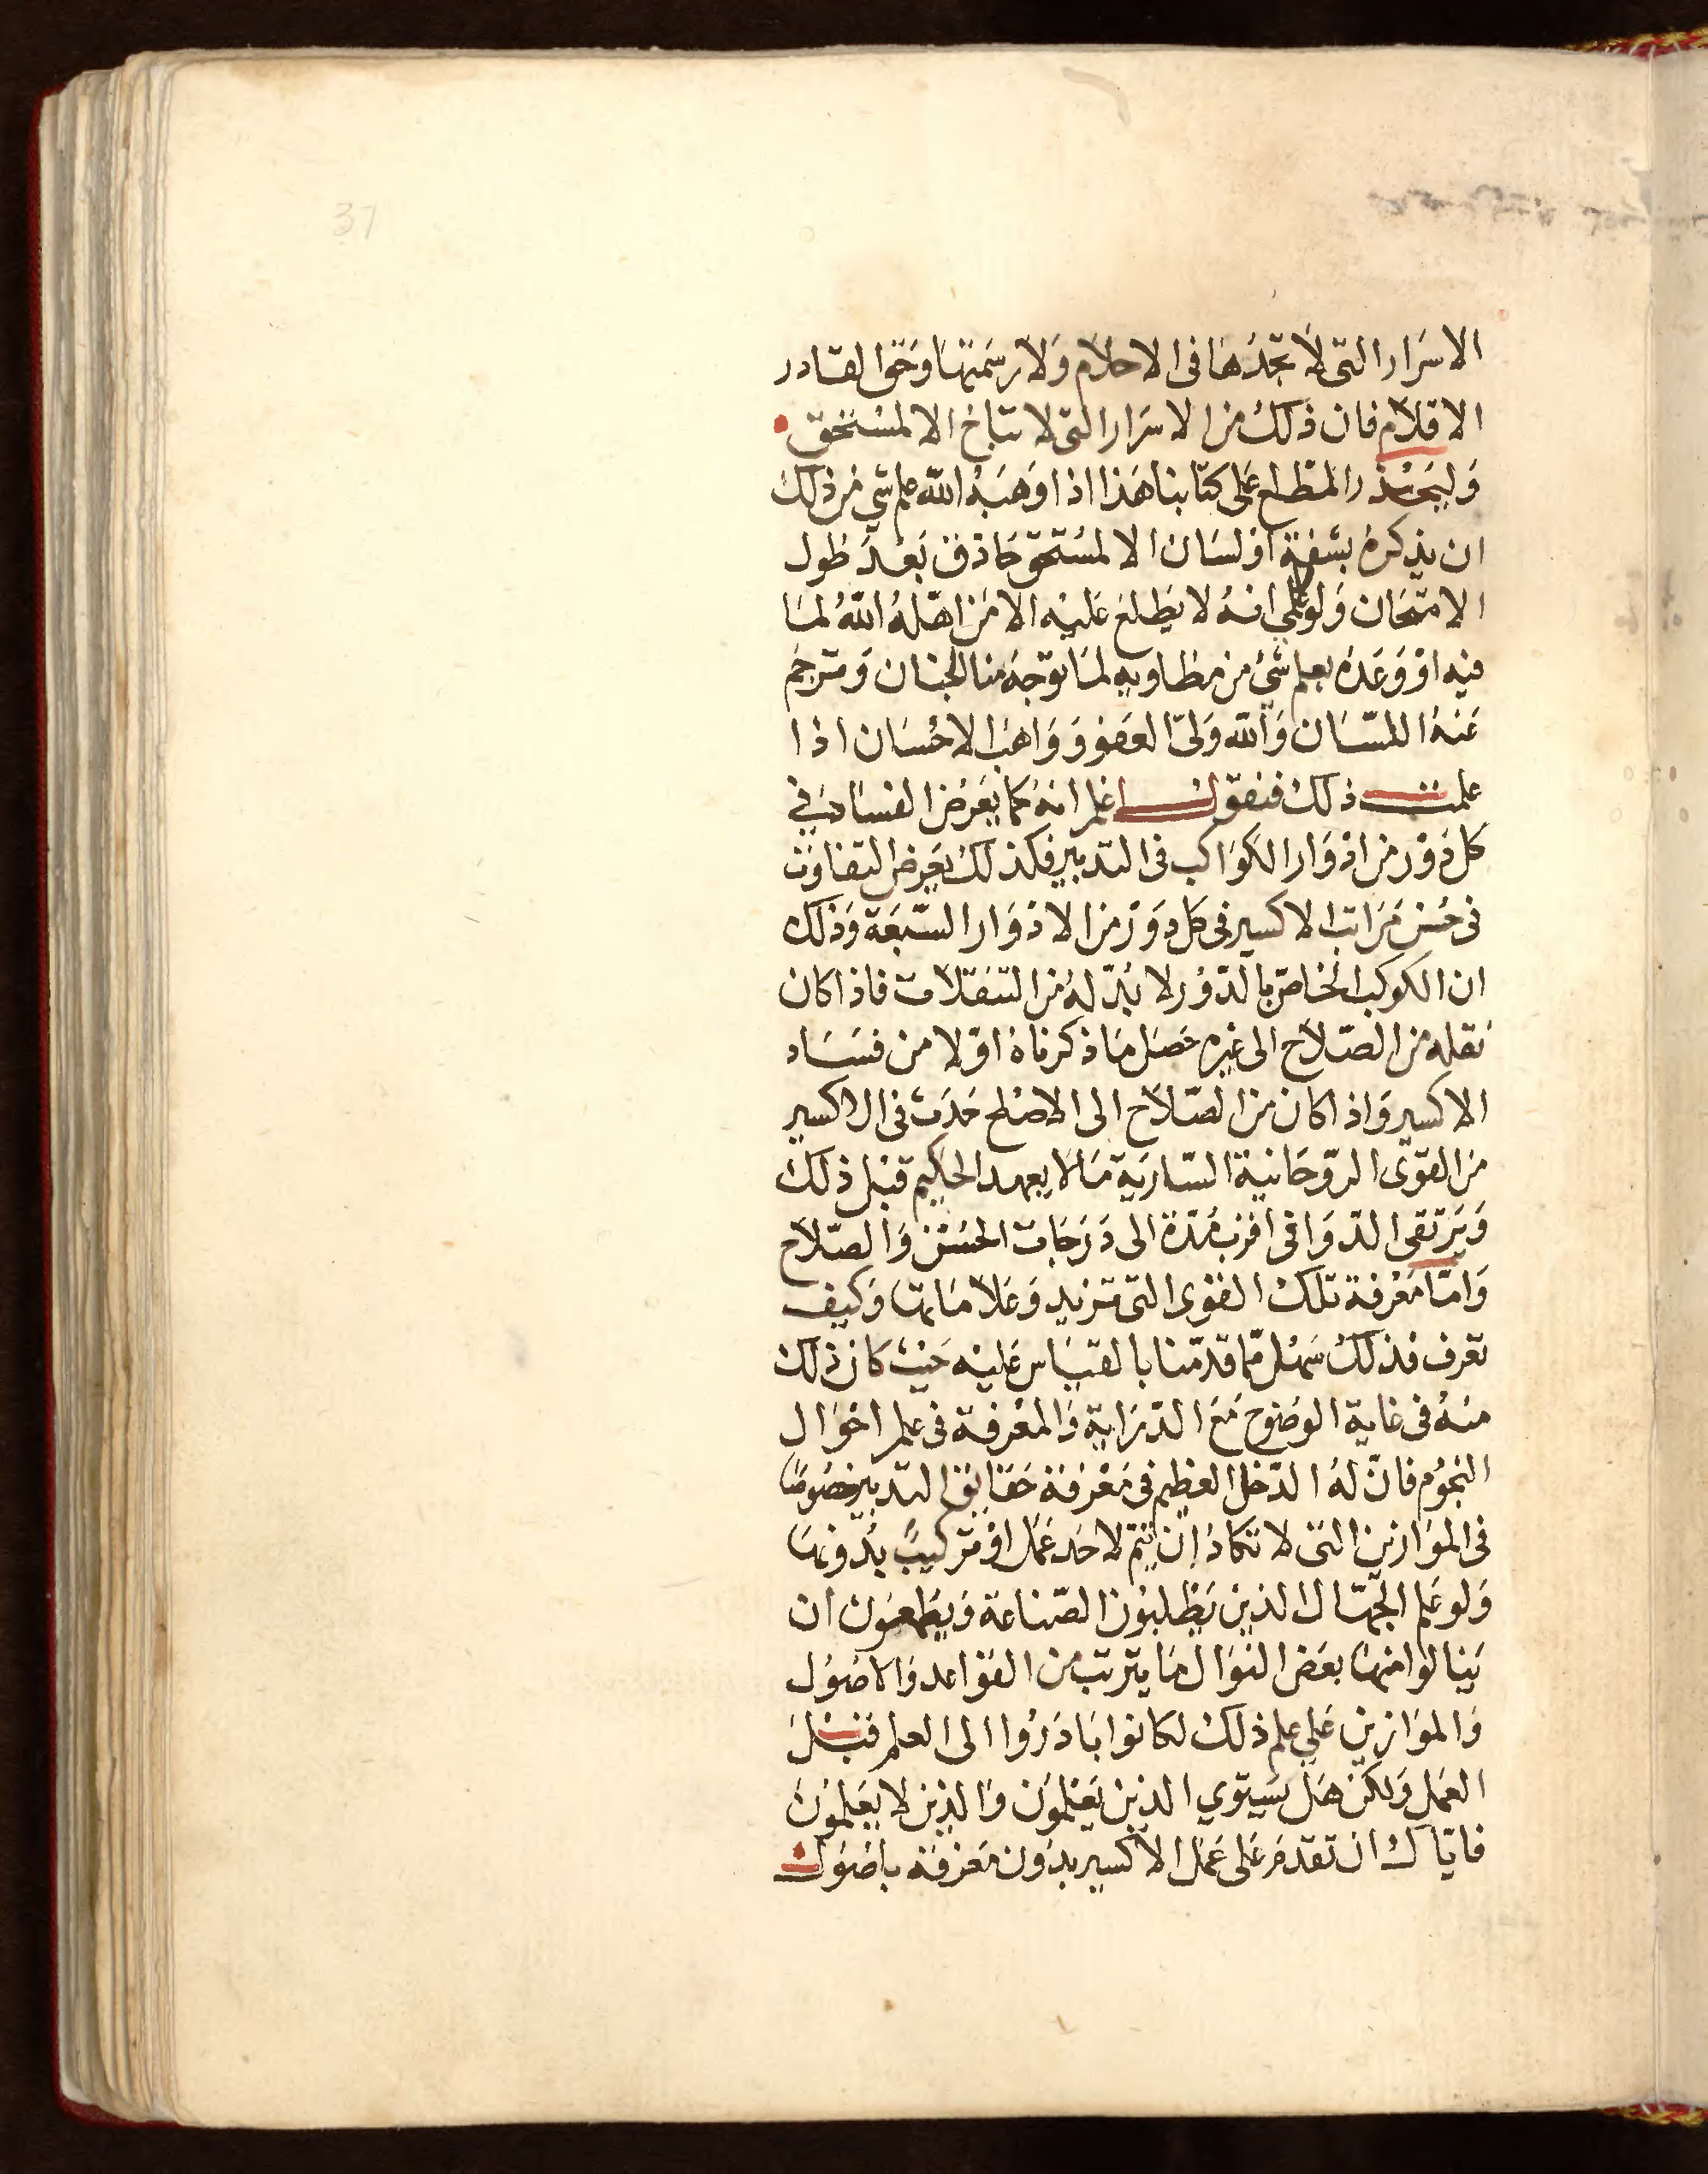 37
الاسرار التى لا تجدها فى الاحلام ولا رسمتها وحق القادر
الاقلام فان ذلك من الاسرار التى لا تباح الا لمستحق
وليحذر المطلع على كتابنا هذا اذا وهبه الله علم شي من ذلك
ان يذكره بشفة او لسان الا لمستحق حاذق بعد طول
الامتحان ولولا علمي انه لا يطلع عليه الا من اهله الله لما
فيه او وعده بعلم شئ من مطاويه لما توجه منا الجنان ومترجم
عنه اللسان والله ولى العفو وواهب الاحسان اذا
علمت ذلك فنقول اعلم انه كما يعرض الفساد في
كل دور من ادوار الكواكب فى التدبير فكذلك يعرض التفاوت
فى حسن مراتب الاكسير فى كل دور من الادوار السبعة وذلك
ان الكوكب الخاص بالدور لا بد له من التنقلات فاذا كان
نقله من الصلاح الى غيره حصل ما ذكرناه اولا من فساد
الاكسير واذا كان من الصلاح الى الاصلح حدث فى الاكسير
من القوى الروحانية السارية ما لا يعهد الحكيم قبل ذلك
ويرتقى الدوا فى اقرب مدة الى درجات الحسن والصلاح
واما معرفة تلك القوى التى تزيد وعلاماتها وكيف
تعرف فذلك سهل مما قدمنا بالقياس عليه حيث كان ذلك
منه فى غاية الوضوح مع الدراية والمعرفة فى علم احوال
النجوم فان له الدخل العظيم فى معرفة حقايق التدبير خصوصا
فى الموازين التى لا تكاد ان يتم لاحد عمل او تركيب بدونها
ولو علم الجهال الذين يطلبون الصناعة ويطمعون ان
ينالوا منها بعض النوال ما يترتب من القواعد والاصول
والموازين علي علم ذلك لكانوا بادروا الى العلم قبل
العمل ولكن هل يستوي الذين يعلمون والذين لا يعلمون
فاياك ان تقدم على عمل الاكسير بدون معرفة باصول